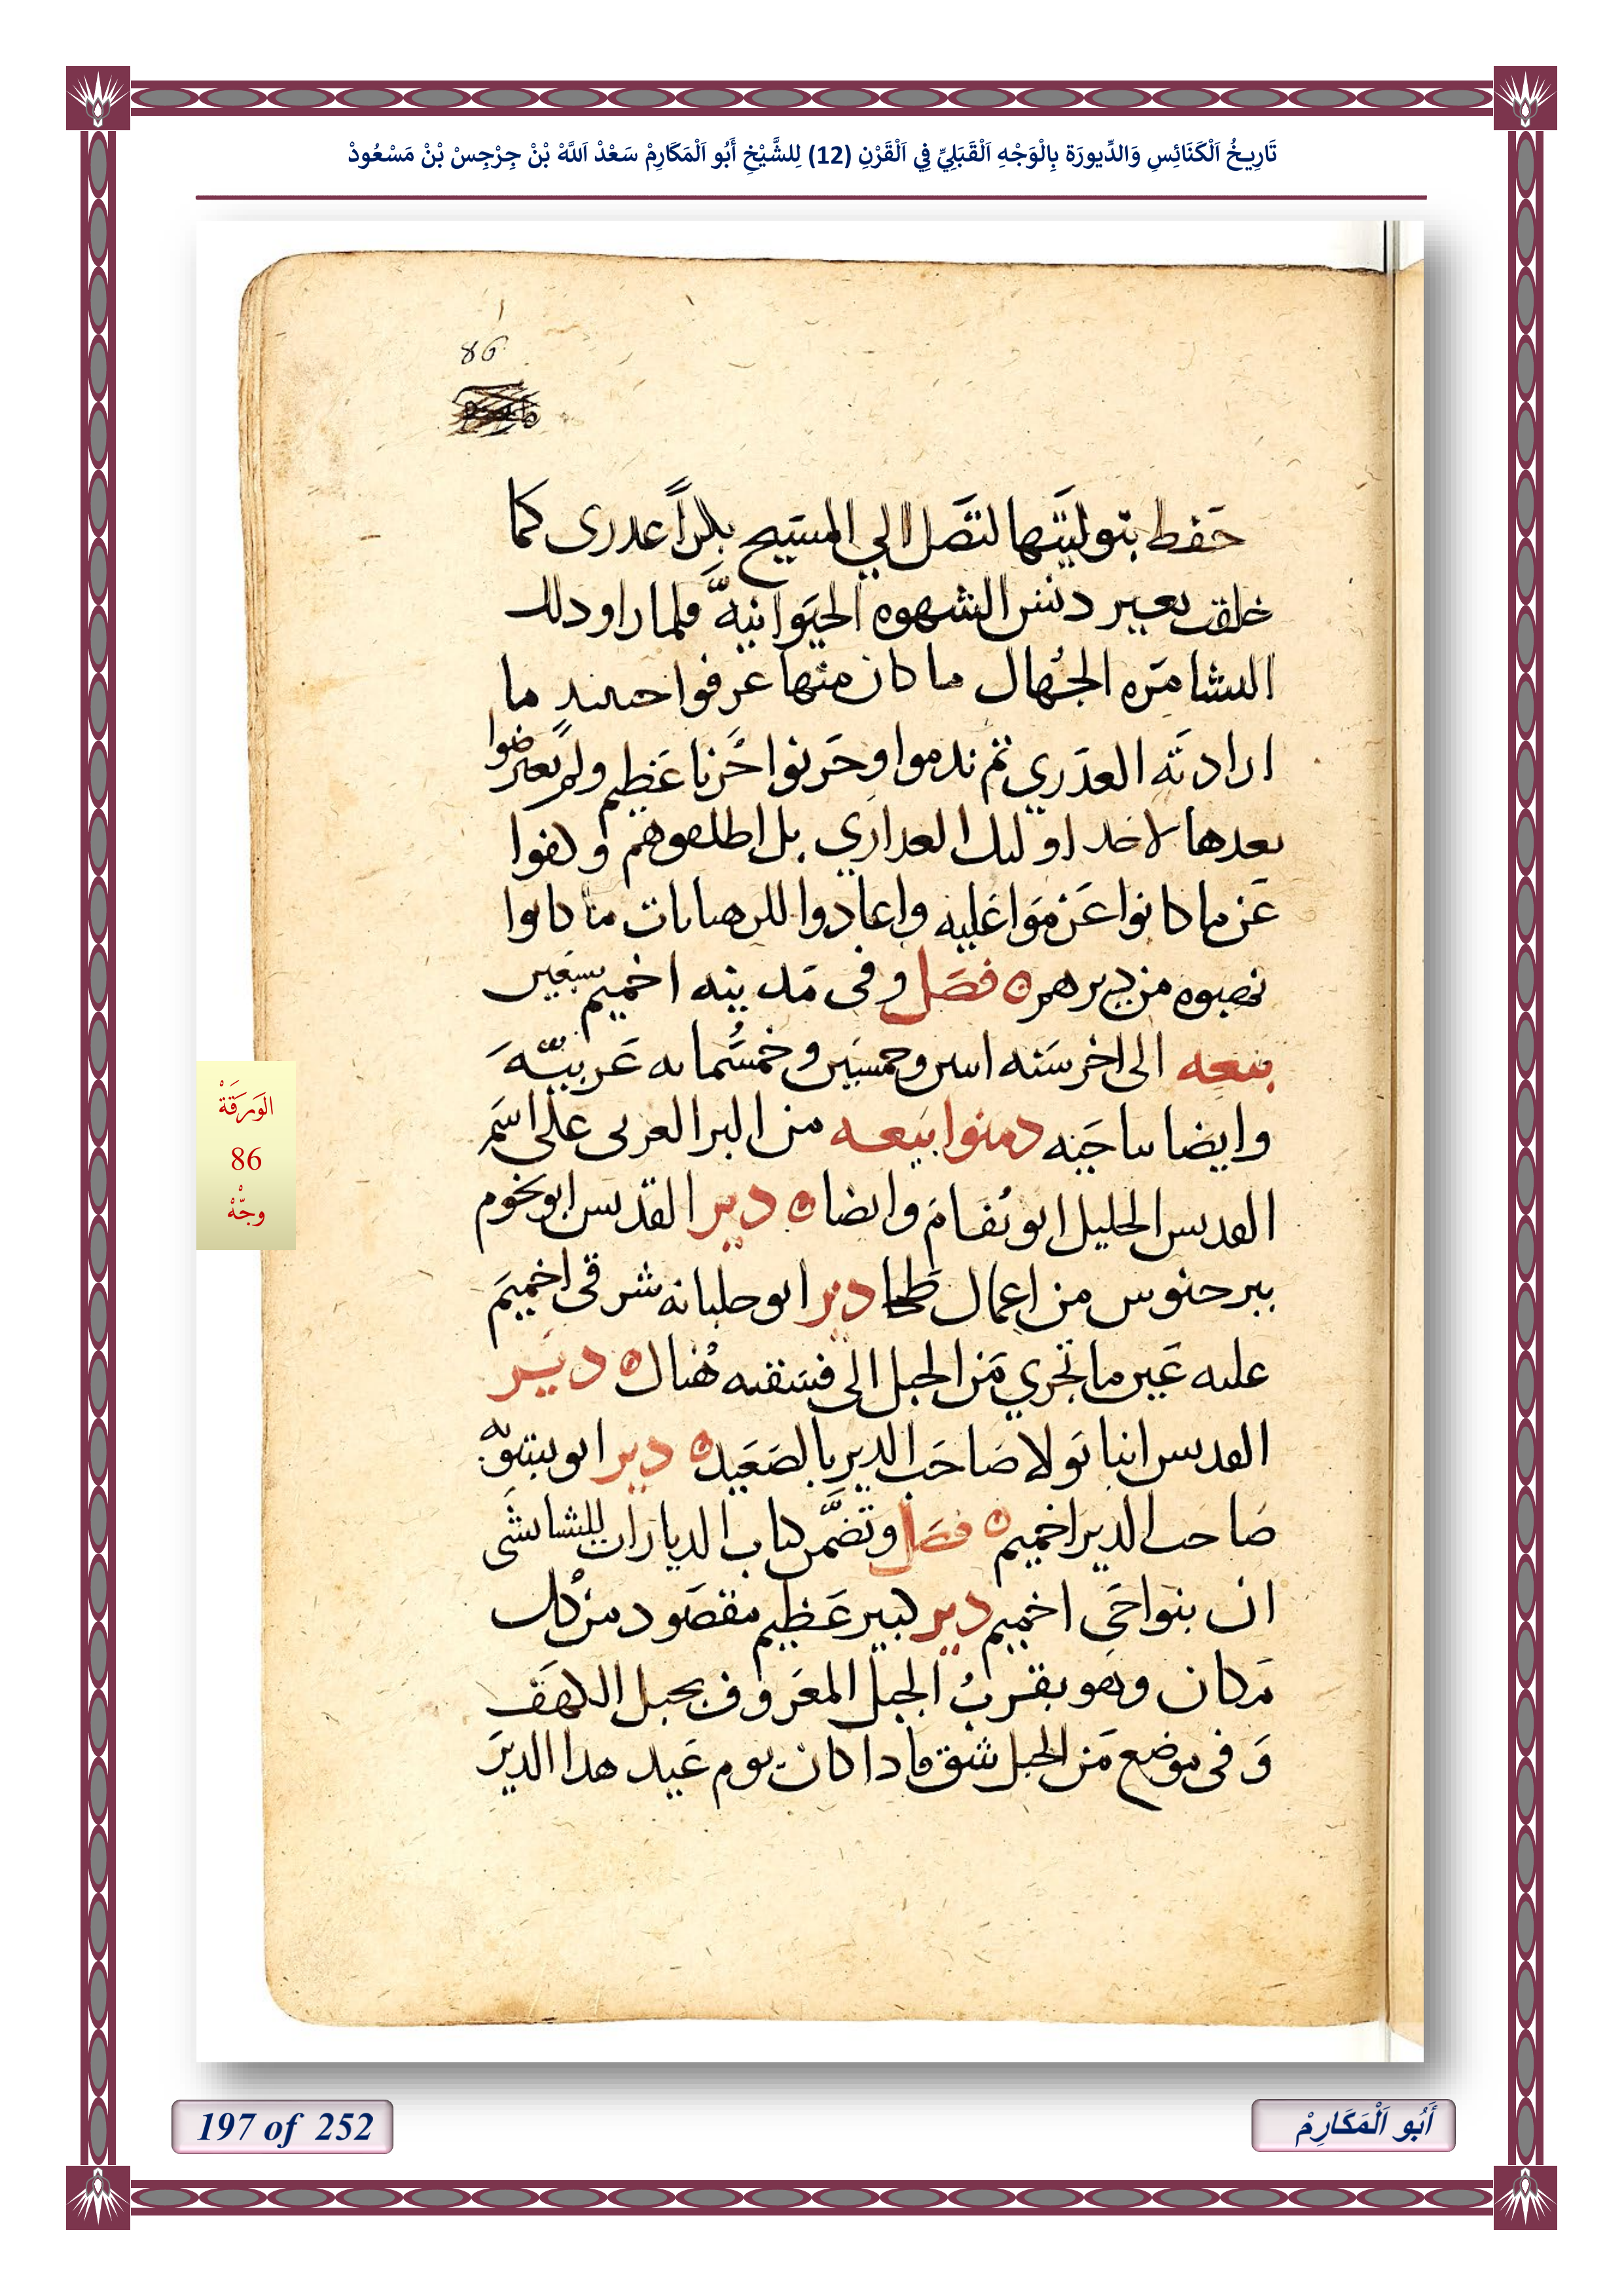 تَارِيخُ اَلْكَنَائِسِ وَالدِّيورَة بِالْوَجْهِ اَلْقَبَلِيِّ فِي اَلْقَرْنِ (12) لِلشَّيْخِ أَبُو اَلْمَكَارِمْ سَعْدْ اَللَّهْ بْنْ جِرْجِسْ بْنْ مَسْعُودْ
86
حفط بتوليتها لتصل الي المسيح بكراً عدرى كما
خلقت بعير دنس الشهوه الحيوانيه فلما راو دلك
البشامره الجهال ما كان منها عرفوا حينيد ما
ارادته العدري تم ندموا وحزنوا حزنا عظيم ولم يعترضوا
بعدها لاحد اوليك العداري بل اطلقوهم وكفوا
عن ما كانوا عزموا عليه واعادوا للرهبانات ما كانوا
نهبوه من ديرهم ه فصل وفى مدينه اخميم سبعين
بيعه الى اخر سنه اسن وخمسين وخمسمايه عربيه
وايضا بناحيه دمنوا بيعه من البر الغربى على اسم
القديس الجليل ابو نفام وايضا ه دير القديس ابو بخوم
ببرحنوس من اعمال طحا دير ابو حلبانه شرقى اخميم
عليه عين ما تجري من الجبل الى فسقيه هناك ه دير
القديس انبا بولا صاحب الدير بالصعيد ه دير ابو بيتوبه
صاحب الدير اخميم ه فصل وتضمن كتاب الديارات للشابشتى
ان بنواحى اخميم دير كبير عظيم مقصود من كل
مكان وهو بقرب الجبل المعروف بجبل الكهف
وفى موضع من الجبل شق فادا كان يوم عيد هدا الدير
الوَرَقَةْ
86
وجّهْ
197 of 252
أَبُو اَلْمَكَارِمْ